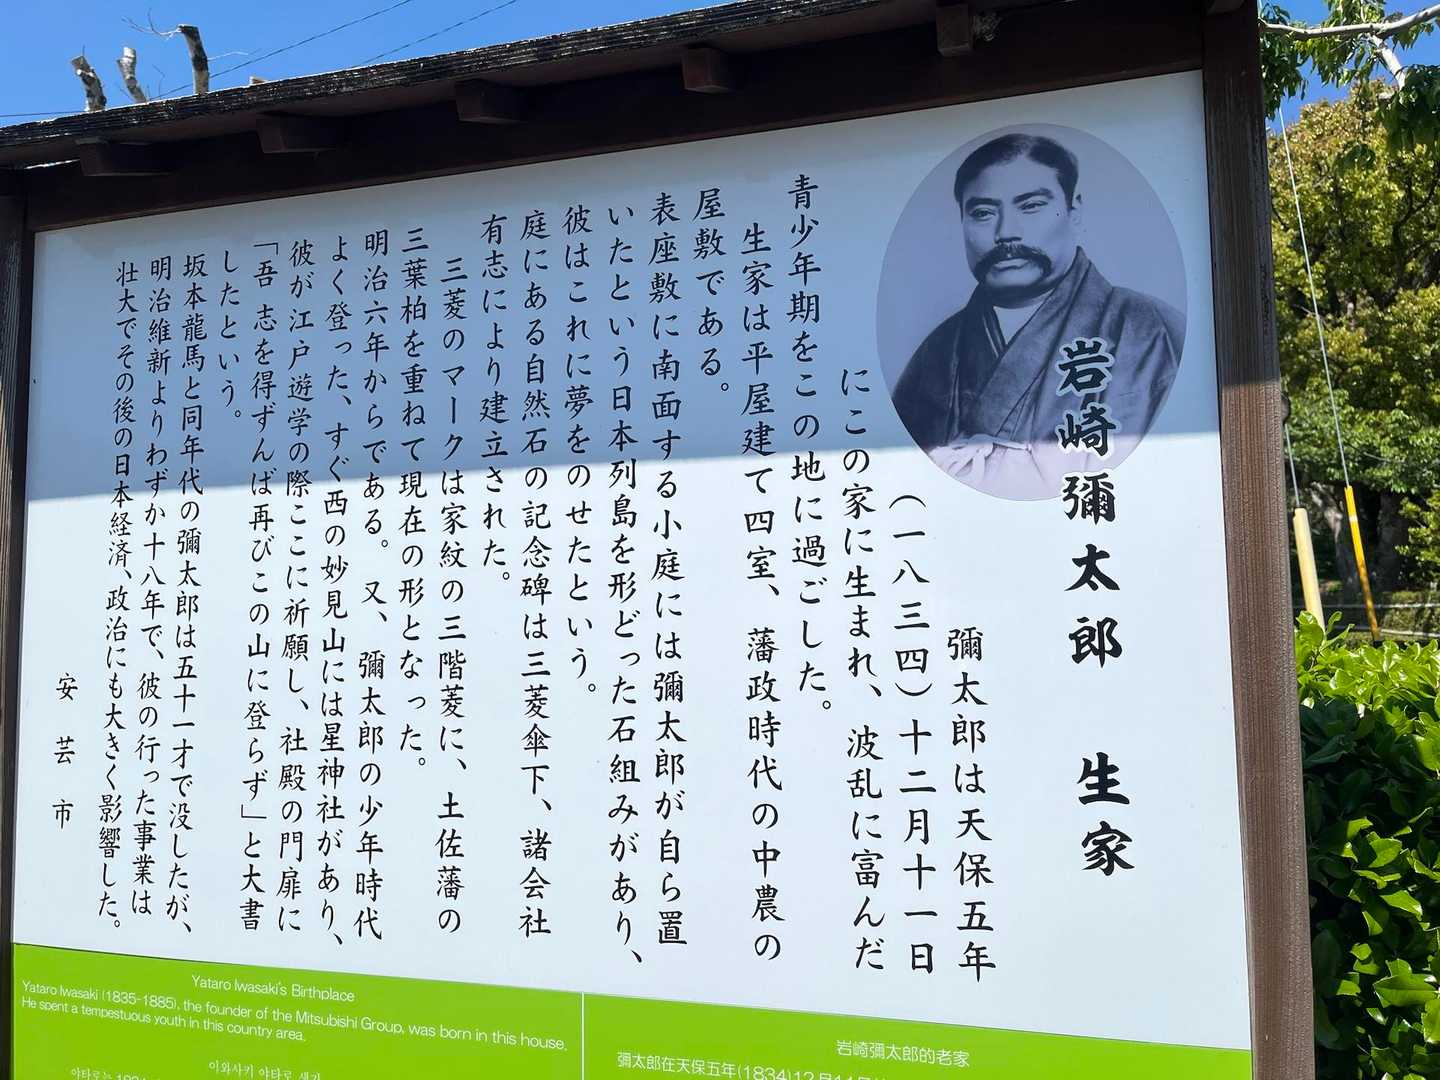 岩崎彌太郎　生家
彌太郎は天保五年
（一八三四）十二月十一日
にこの家に生まれ、波乱に富んだ
青少年期をこの地に過ごした。
生家は平屋建て四室、藩政時代の中農の
屋敷である。
表座敷に南面する小庭には彌太郎が自ら置
いたという日本列島を形どった石組みがあり、
彼はこれに夢をのせたという。
庭にある自然石の記念碑は三菱傘下、諸会社
有志により建立された。
三菱のマークは家紋の三階菱に、土佐藩の
三葉柏を重ねて現在の形となった。
明治六年からである。又、彌太郎の少年時代
よく登った、すぐ西の妙見山には星神社があり、
彼が江戸遊学の際ここに祈願し、社殿の門扉に
「吾 志を得ずんば再びこの山に登らず」と大書
したという。
坂本龍馬と同年代の彌太郎は五十一才で没したが、
明治維新よりわずか十八年で、彼の行った事業は
壮大でその後の日本経済、政治にも大きく影響した。
安芸市
Yataro Iwasaki's Birthplace
Yataro Iwasaki (1835-1885), the founder of the Mitsubishi Group, was born in this house.
He spent a tempestuous youth in this country area.
이와사키 야타로 생가
岩崎彌太郎的老家
彌太郎在天保五年(1834)12月11日